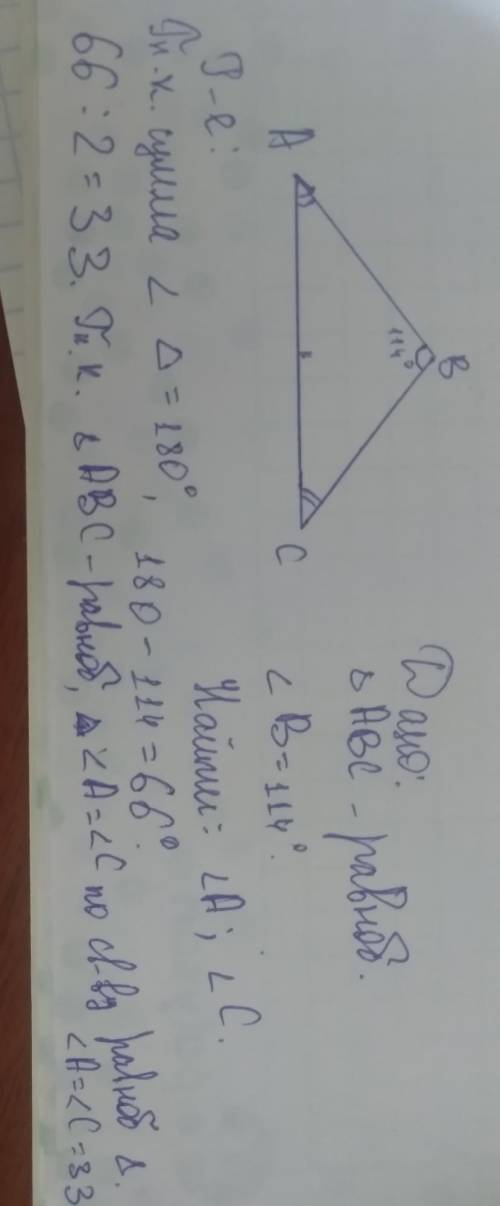 Дано:
△ ABC - равноб.
∠ B = 114°.
Найти: ∠A; ∠C.
B
114°
A
C
Р-е:
Т.к. сумма ∠ △ = 180°, 180 - 114 = 66°
66 : 2 = 33. Т.к. △ ABC - равноб, ∠A = ∠C по св-ву равноб △.
∠A = ∠C = 33